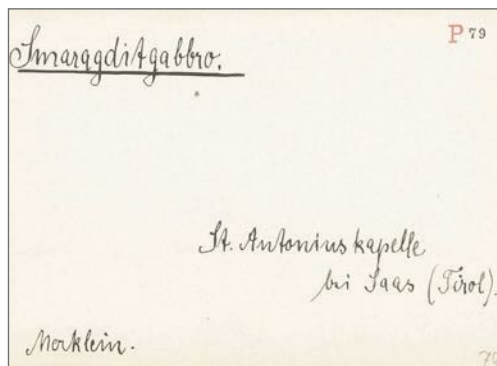 P 79
Smaragditgabbro.
St. Antoniuskapelle
bei Saas (Tirol).
Morklein.
79